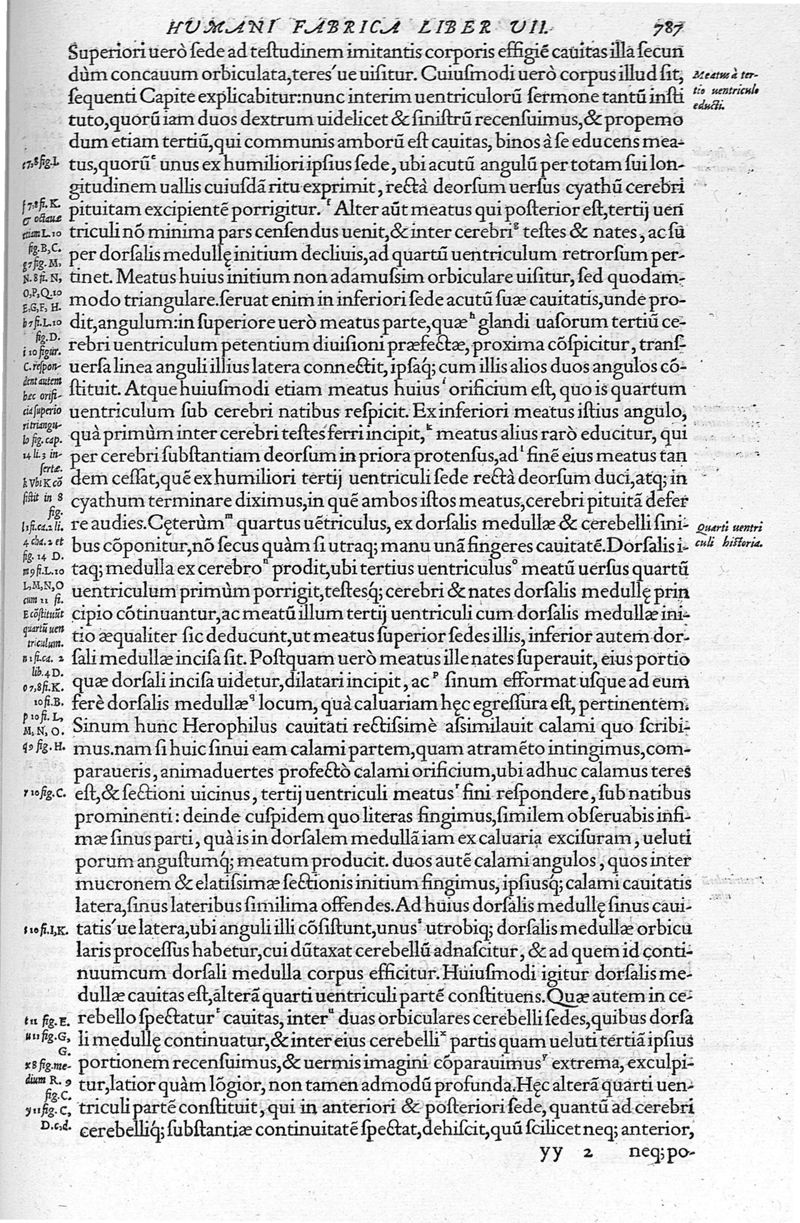 HVMANI FABRICA LIBER VII. 787
Superiori uerò sede ad testudinem imitantis corporis effigiẽ cauitas illa secun
dùm concauum orbiculata, teres'ue uisitur. Cuiusmodi uerò corpus illud sit,
sequenti Capite explicabitur: nunc interim uentriculorũ sermone tantũ insti
tuto, quorũ iam duos dextrum uidelicet & sinistrũ recensuimus, & propemo
dum etiam tertiũ, qui communis amborũ est cauitas, binos à se educens mea-
tus, quorũ e unus ex humiliori ipsius sede, ubi acutũ angulũ per totam sui lon-
gitudinem uallis cuiusdã ritu exprimit, rectà deorsum uersus cyathũ cerebri
pituitam excipientẽ porrigitur. f Alter aũt meatus qui posterior est, tertij uen
triculi nõ minima pars censendus uenit, & inter cerebri g testes & nates, ac sũ
per dorsalis medullę initium decliuis, ad quartũ uentriculum retrorsum per-
tinet. Meatus huius initium non adamussim orbiculare uisitur, sed quodam-
modo triangulare. seruat enim in inferiori sede acutũ suæ cauitatis, unde pro-
dit, angulum: in superiore uerò meatus parte, quæ h glandi uasorum tertiũ ce-
rebri uentriculum petentium diuisioni præfectæ, proxima cõspicitur, trans-
uersa linea anguli illius latera connectit, ipsaq; cum illis alios duos angulos cõ-
stituit. Atque huiusmodi etiam meatus huius i orificium est, quo is quartum
uentriculum sub cerebri natibus respicit. Ex inferiori meatus istius angulo,
quà primùm inter cerebri testes ferri incipit, k meatus alius rarò educitur, qui
per cerebri substantiam deorsum in priora protensus, ad l finẽ eius meatus tan
dem cessat, quẽ ex humiliori tertij uentriculi sede rectà deorsum duci, atq; in
cyathum terminare diximus, in quẽ ambos istos meatus, cerebri pituitã defer
re audies. Cęterùm m quartus uẽtriculus, ex dorsalis medullæ & cerebelli sini-
bus cõponitur, nõ secus quàm si utraq; manu unã fingeres cauitatẽ. Dorsalis i-
taq; medulla ex cerebro n prodit, ubi tertius uentriculus o meatũ uersus quartũ
uentriculum primùm porrigit, testesq; cerebri & nates dorsalis medullę prin
cipio cõtinuantur, ac meatũ illum tertij uentriculi cum dorsalis medullæ ini-
tio æqualiter sic deducunt, ut meatus superior sedes illis, inferior autem dor-
sali medullæ incisa sit. Postquam uerò meatus ille nates superauit, eius portio
quæ dorsali incisa uidetur, dilatari incipit, ac p sinum efformat usque ad eum
ferè dorsalis medullæ q locum, quà caluariam hęc egressura est, pertinentem.
Sinum hunc Herophilus cauitati rectissimè assimilauit calami quo scribi-
mus. nam si huic sinui eam calami partem, quam atramẽto intingimus, com-
paraueris, animaduertes profectò calami orificium, ubi adhuc calamus teres
est, & sectioni uicinus, tertij uentriculi meatus r fini respondere, sub natibus
prominenti: deinde cuspidem quo literas fingimus, similem obseruabis infi-
mæ sinus parti, quà is in dorsalem medullã iam ex caluaria excisuram, ueluti
porum angustumq; meatum producit. duos autẽ calami angulos, quos inter
mucronem & elatissimæ sectionis initium fingimus, ipsiusq; calami cauitatis
latera, sinus lateribus similima offendes. Ad huius dorsalis medullę sinus caui-
tatis'ue latera, ubi anguli illi cõsistunt, unus s utrobiq; dorsalis medullæ orbicu
laris processus habetur, cui dũtaxat cerebellũ adnascitur, & ad quem id conti-
nuumcum dorsali medulla corpus efficitur. Huiusmodi igitur dorsalis me-
dullæ cauitas est, alterã quarti uentriculi partẽ constituens. Quæ autem in ce-
rebello spectatur t cauitas, inter u duas orbiculares cerebelli sedes, quibus dorsa
li medullę continuatur, & inter eius cerebelli x partis quam ueluti tertiã ipsius
portionem recensuimus, & uermis imagini cõparauimus y extrema, exculpi-
tur, latior quàm lõgior, non tamen admodũ profunda. Hęc alterã quarti uen-
triculi partẽ constituit, qui in anteriori & posteriori sede, quantũ ad cerebri
cerebelliq; substantiæ continuitatẽ spectat, dehiscit, quũ scilicet neq; anterior,
yy 2 neq; po-
Meatus à ter-
tio uentriculo
educti.
Quarti uentri
culi historia.
e 7,8 fig. I.
f 7,8 fi. K.
& octauæ
etiam L. 10
fig. B, C.
g 7 fig. M,
N. 8 fi. N,
O, P, Q. 10
E, G, F, H.
h 7 fi. L. 10
fig. D.
i 10 figur.
C. respon-
dent autem
hæc orifi-
cia superio
ri triangu-
lo fig. cap.
14 li. 3 in-
sertæ.
k Vbi K cõ
sistit in 8
fig.
l 1 fi. ca. 2 li.
4 cha. 2 et
fig. 14 D.
m 9 fi. L. 10
L, M, N, O
cum 11 fi.
E cõstituũt
quartũ uen
triculum.
n 1 fi. ca. 2
lib. 4 D.
o 7, 8 fi. K.
10 fi. B.
p 10 fi. L,
M, N, O.
q 9 fig. H.
r 10 fig. C.
s 10 fi. I, K.
t 11 fig. E.
u 11 fig. G,
G.
x 8 fig. me-
dium R. 9
fig. C.
y 11 fig. C,
D. c, d.